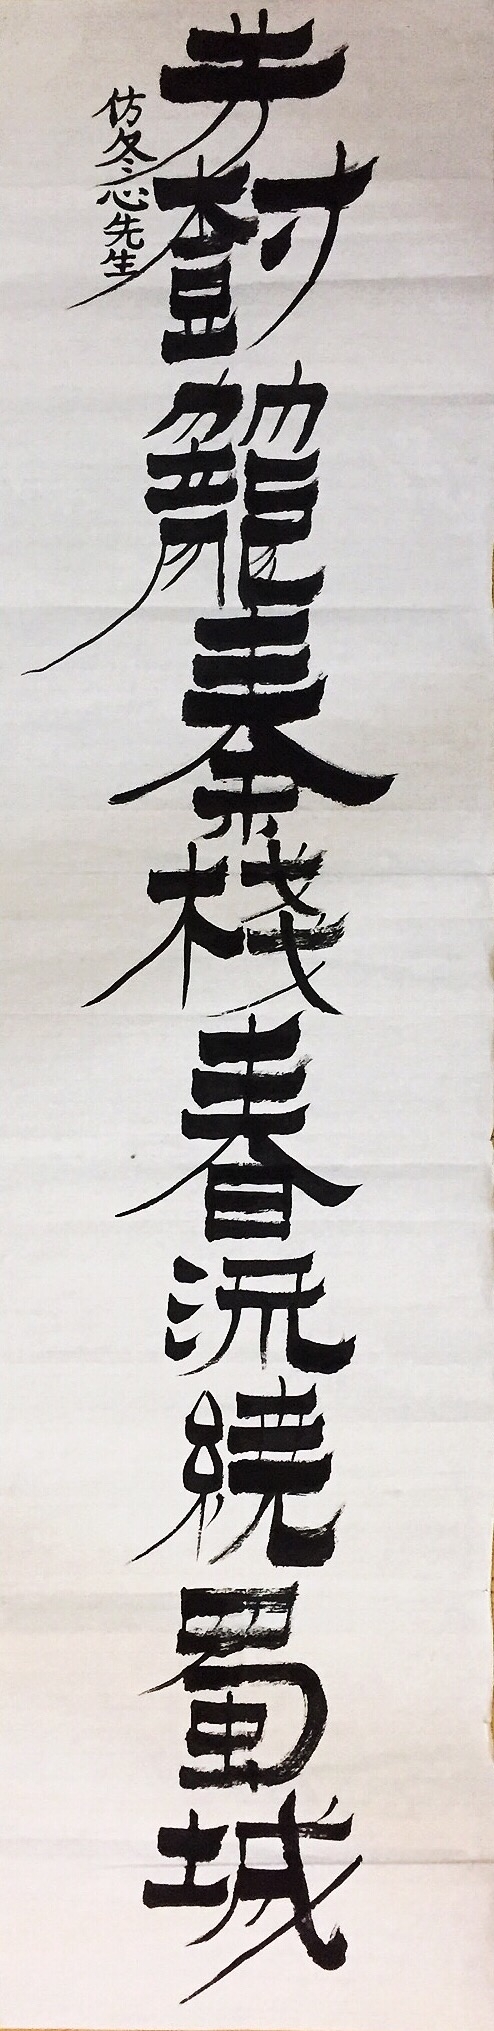 芳樹籠秦棧春流繞蜀城
仿冬心先生